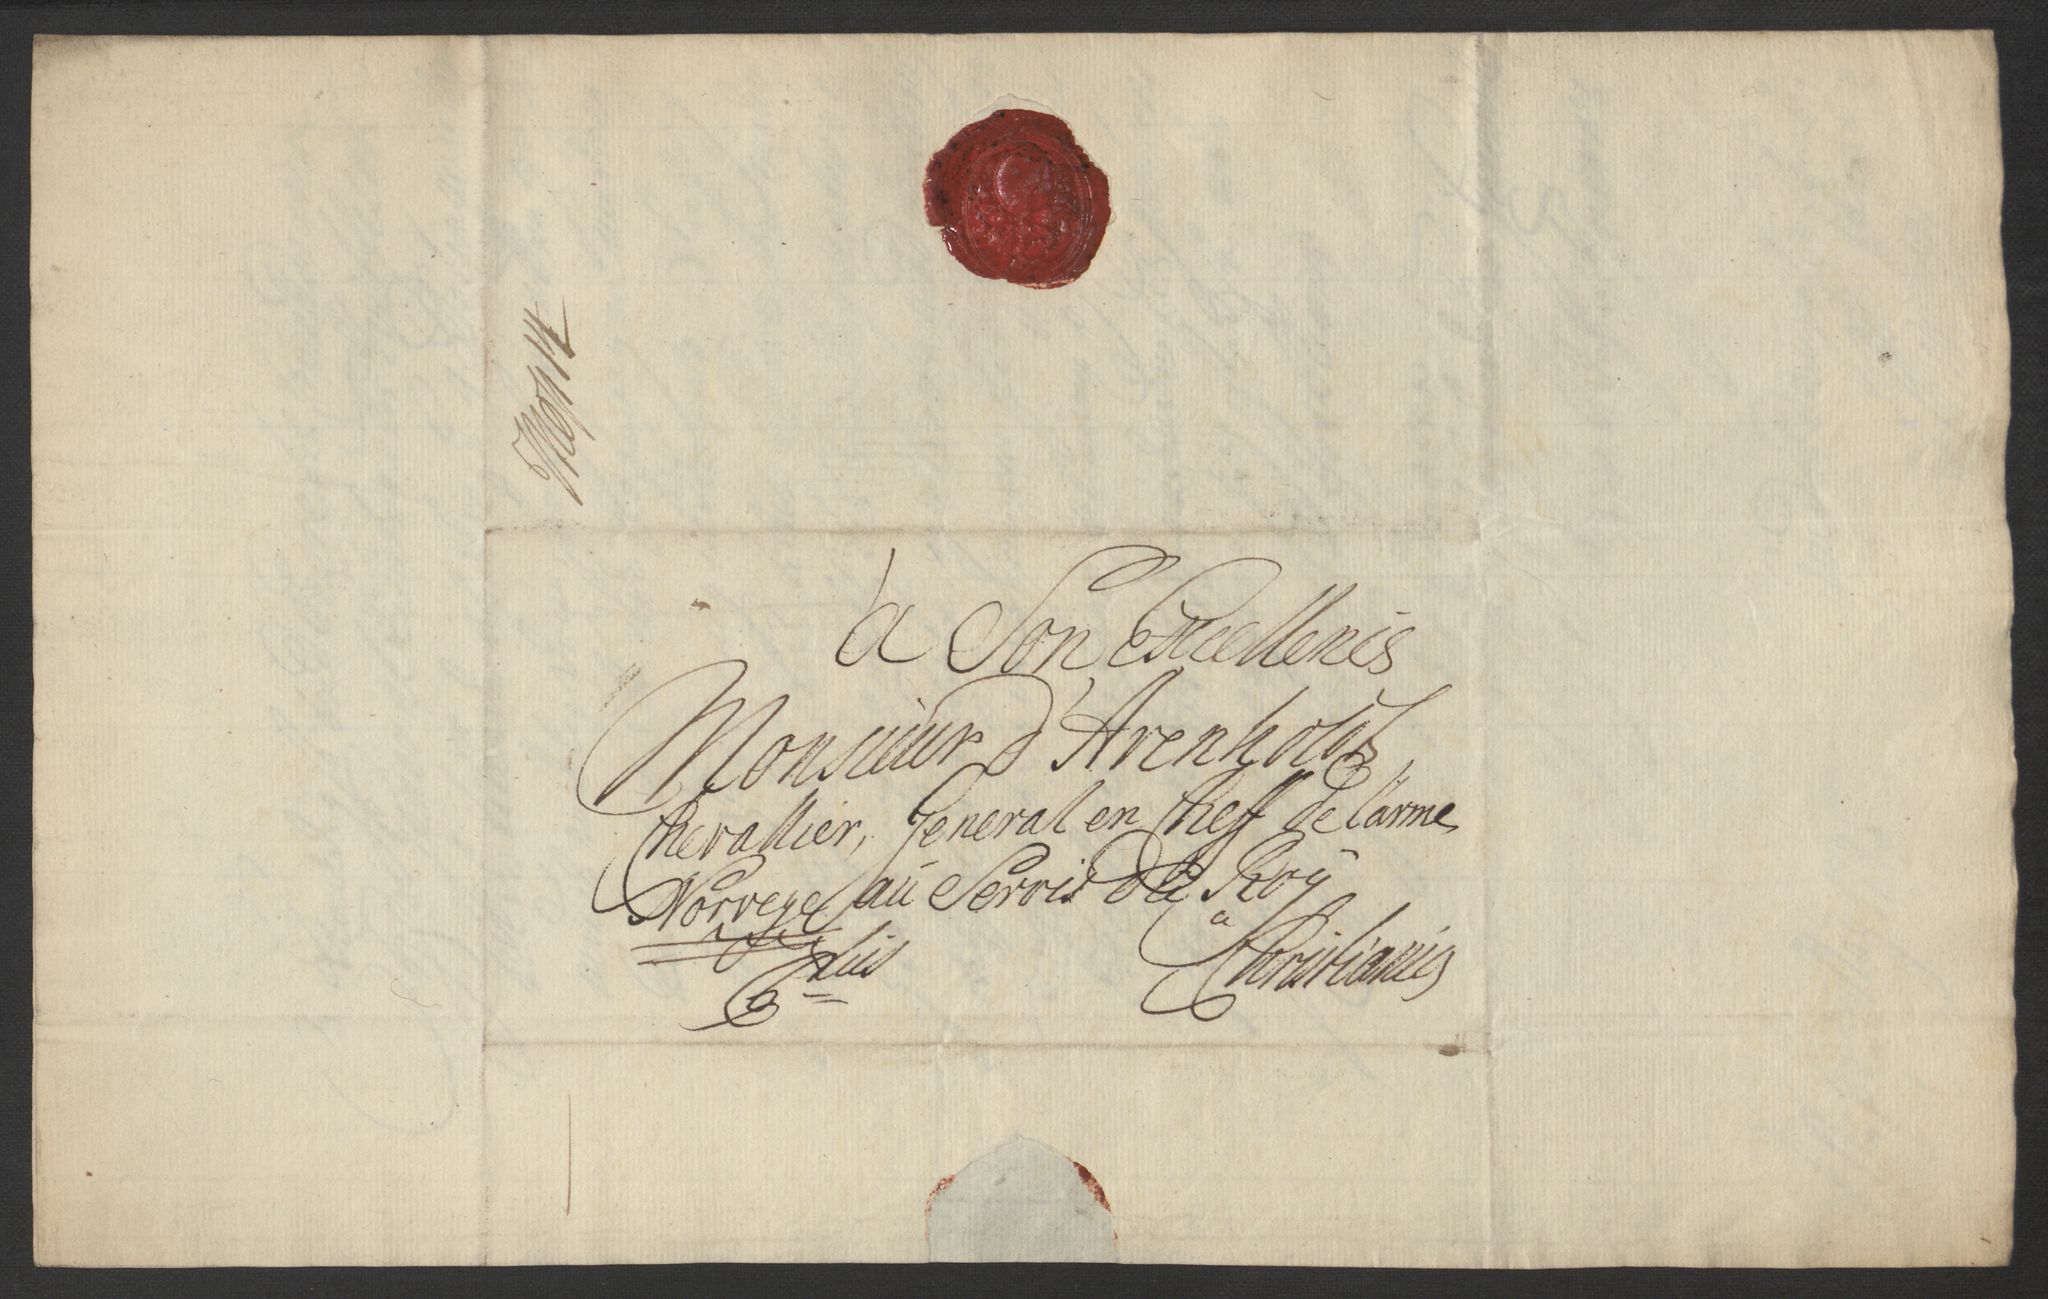 a Son Excellenis
Monsieur d'Arenholdt
Chevallier, General en Cheff de l'arme
Norvege au Servis de Roÿ
a
Christianis